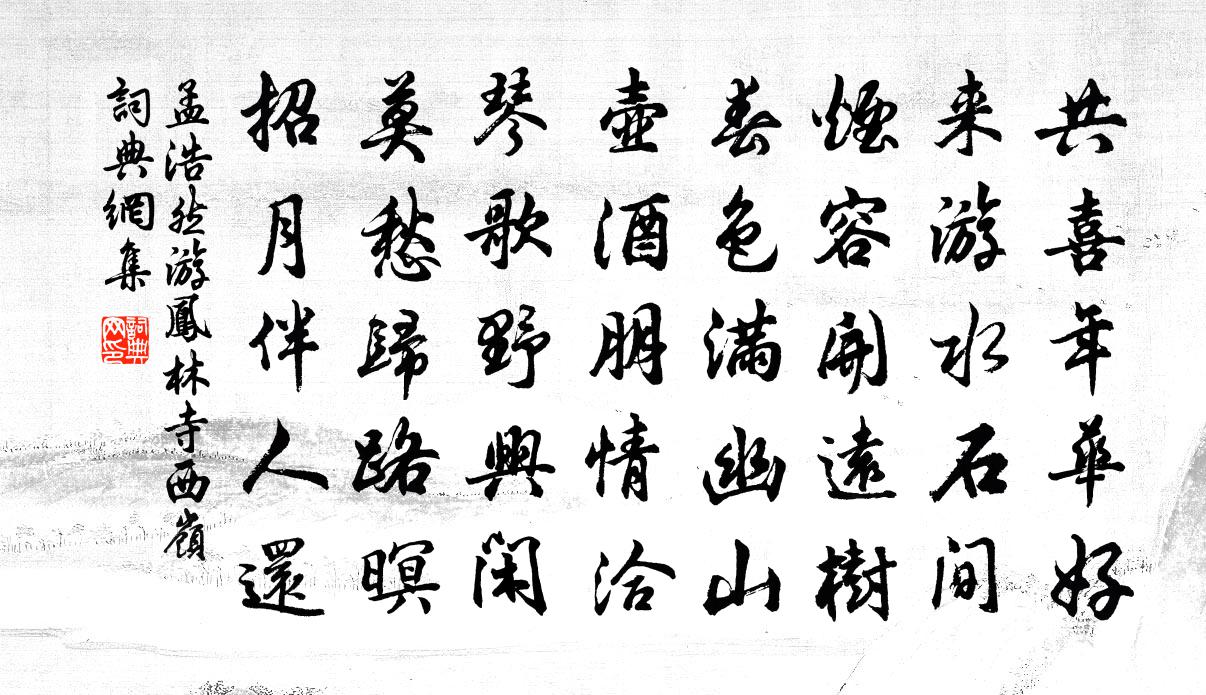 共喜年華好
来游水石間
煙容開遠樹
春色满幽山
壺酒朋情洽
琴歌野興閑
莫愁歸路暝
招月伴人還
孟浩然游鳳林寺西嶺
詞典網集
詞典網印